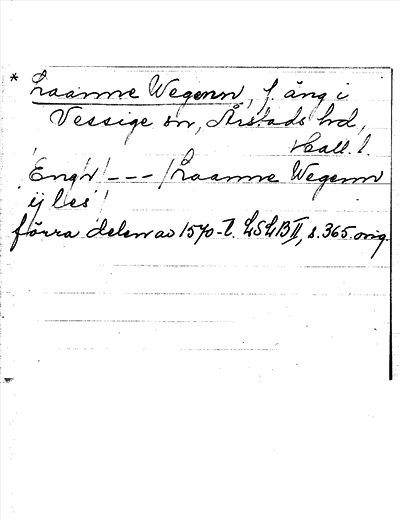 * Laanne Wegenn, f. äng i
Vessige sn, Årstads hd,
Hall. l.
'Engr' --- / Laanne Wegenn
ij les'
förra delen av 1570-t. LSLB II, s. 365. orig.